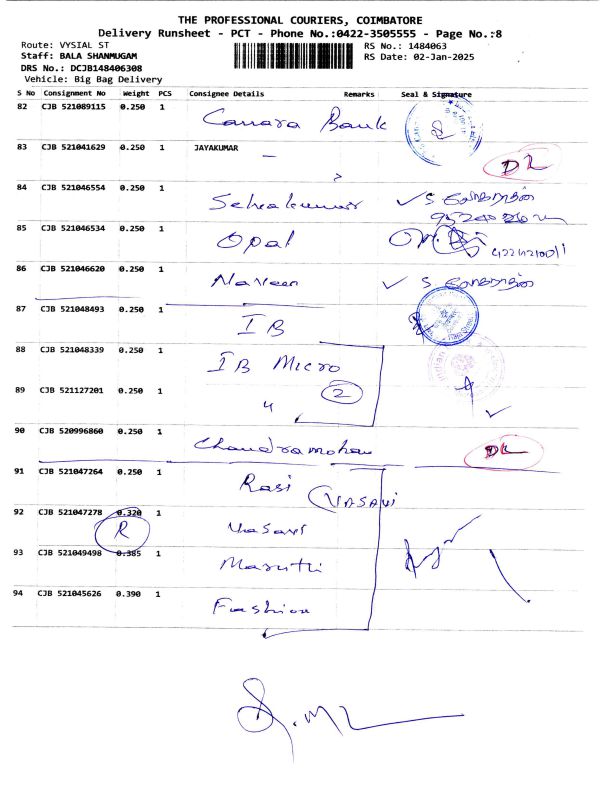 THE PROFESSIONAL COURIERS, COIMBATORE
Delivery Runsheet - PCT - Phone No.:0422-3505555 - Page No.:8
Route: VYSIAL ST
RS No.: 1484063
Staff: BALA SHANMUGAM
RS Date: 02-Jan-2025
DRS No.: DCJB148406308
Vehicle: Big Bag Delivery
S No Consignment No Weight PCS Consignee Details Remarks Seal & Signature
82 CJB 521089115 0.250 1 Canara Bank
83 CJB 521041629 0.250 1 JAYAKUMAR DL
84 CJB 521046554 0.250 1 Selvakumar
85 CJB 521046534 0.250 1 Opal
86 CJB 521046620 0.250 1 Naveen
87 CJB 521048493 0.250 1 IB
88 CJB 521048339 0.250 1 IB Micro
89 CJB 521127201 0.250 1 " 2
90 CJB 520996860 0.250 1 Chandramohan DL
91 CJB 521047264 0.250 1 Rasi VASAVI
92 CJB 521047278 0.320 1 R Vasavi
93 CJB 521049498 0.385 1 Maruthi
94 CJB 521045626 0.390 1 Fashion